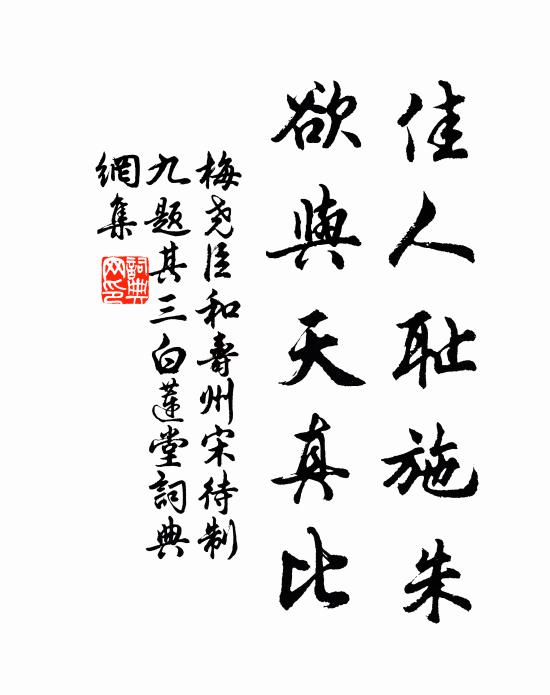 佳人耻施朱
欲與天真比
梅尧臣和壽州宋待制
九题其三白蓮堂詞典
網集
詞典
网印